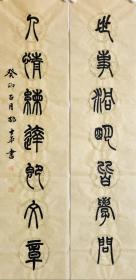 世事洞明皆學問
人情練達即文章
癸卯年月楊士軍書